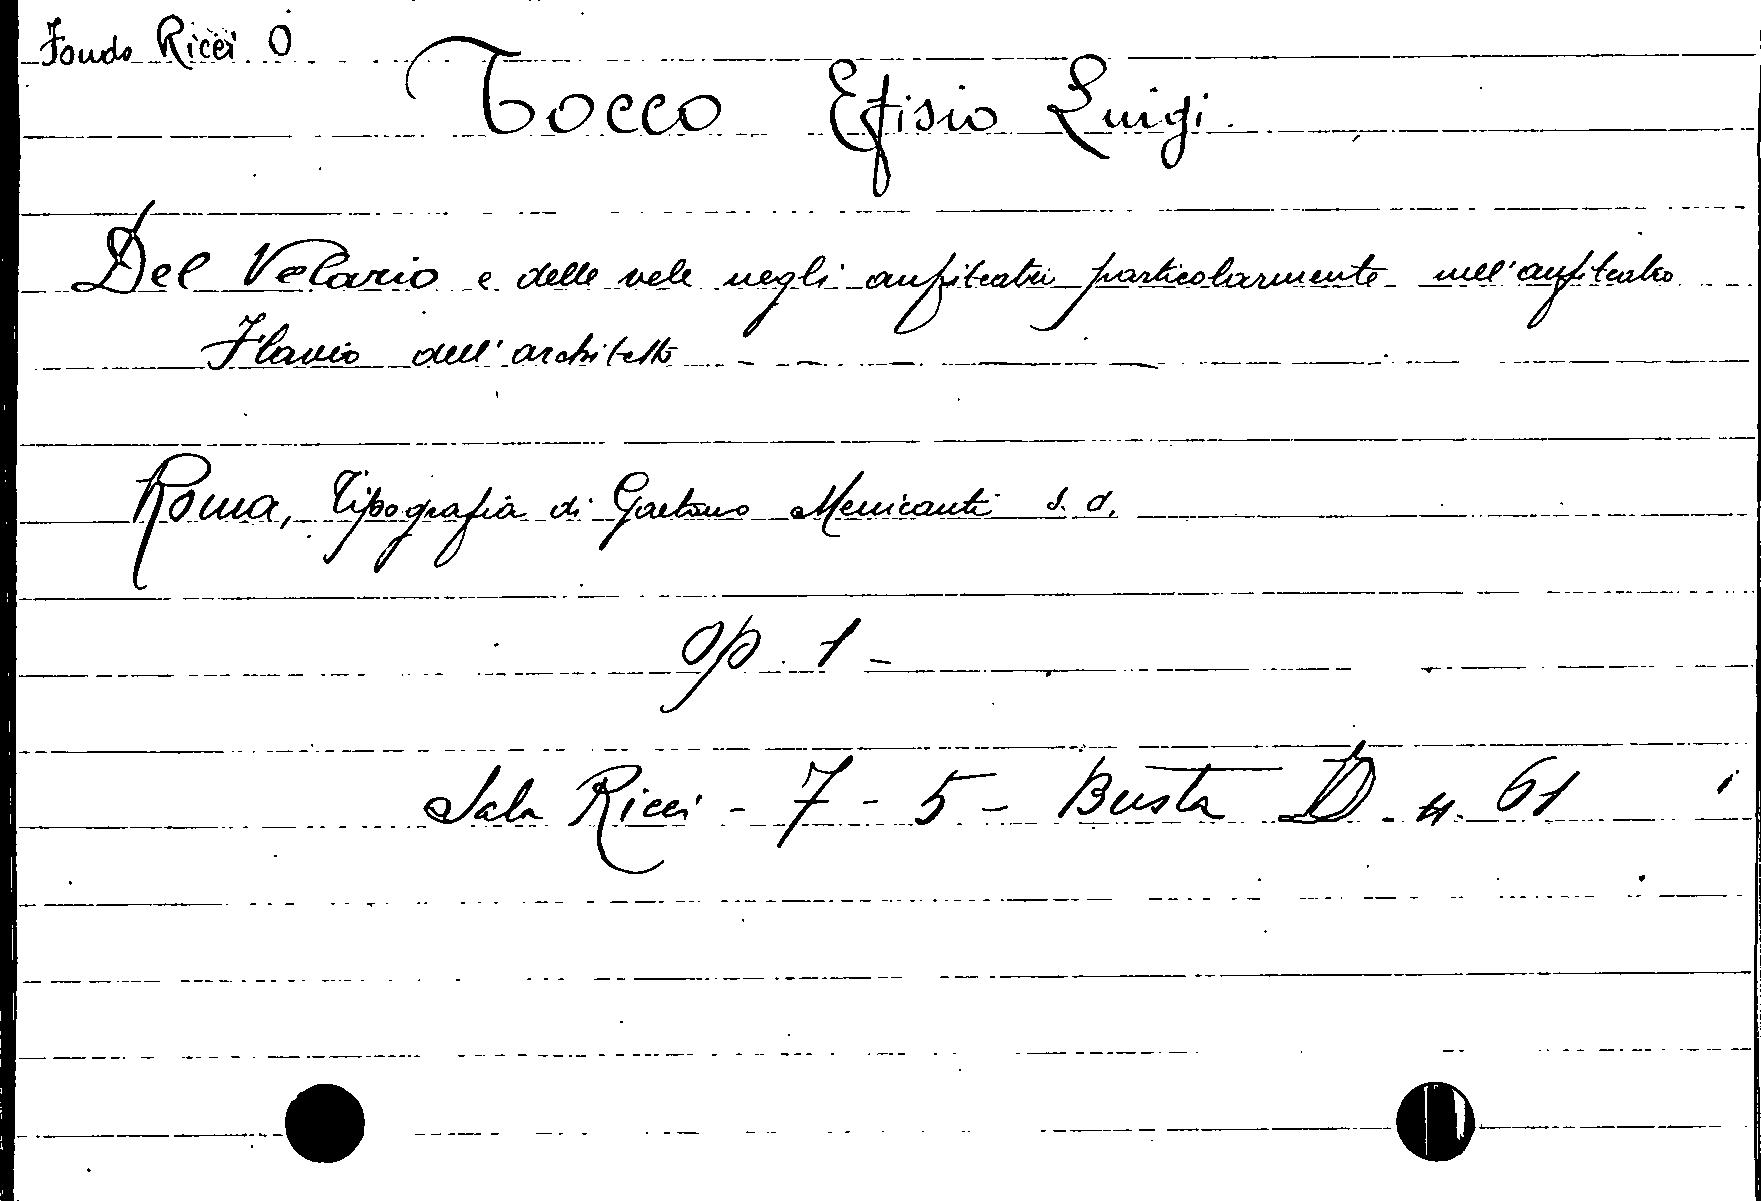 Fondo Ricci O
Tocco Efisio Luigi
Del Velario e delle vele negli anfiteatri particolarmente nell'anfiteatro
Flavio dell'architetto -
Roma, Tipografia di Gaetano Menicanti s. d.
op. 1 -
Sala Ricci - 7 - 5 - Busta D. n. 61